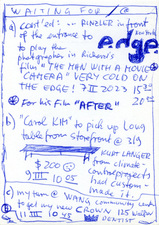 WAITING FOR / @
a) coast 2d: w RINZLER in front
of the entrance to edge. New York
to play the
photographer in Richard's
film "THE MAN WITH A MOVIE
CAMERA" VERY COLD ON
THE EDGE! 7 II 2023 15
For his film "AFTER"
b) "Carol LIM" to pick up long
table from storefront @ 319
KURT LANGER
from climate-
control projects
had custom-
made it
$200 @
9 III 10 25
c) my turn @ WANG community
to get my new CROWN 125 WALKER
9 III 10 45 DENTIST